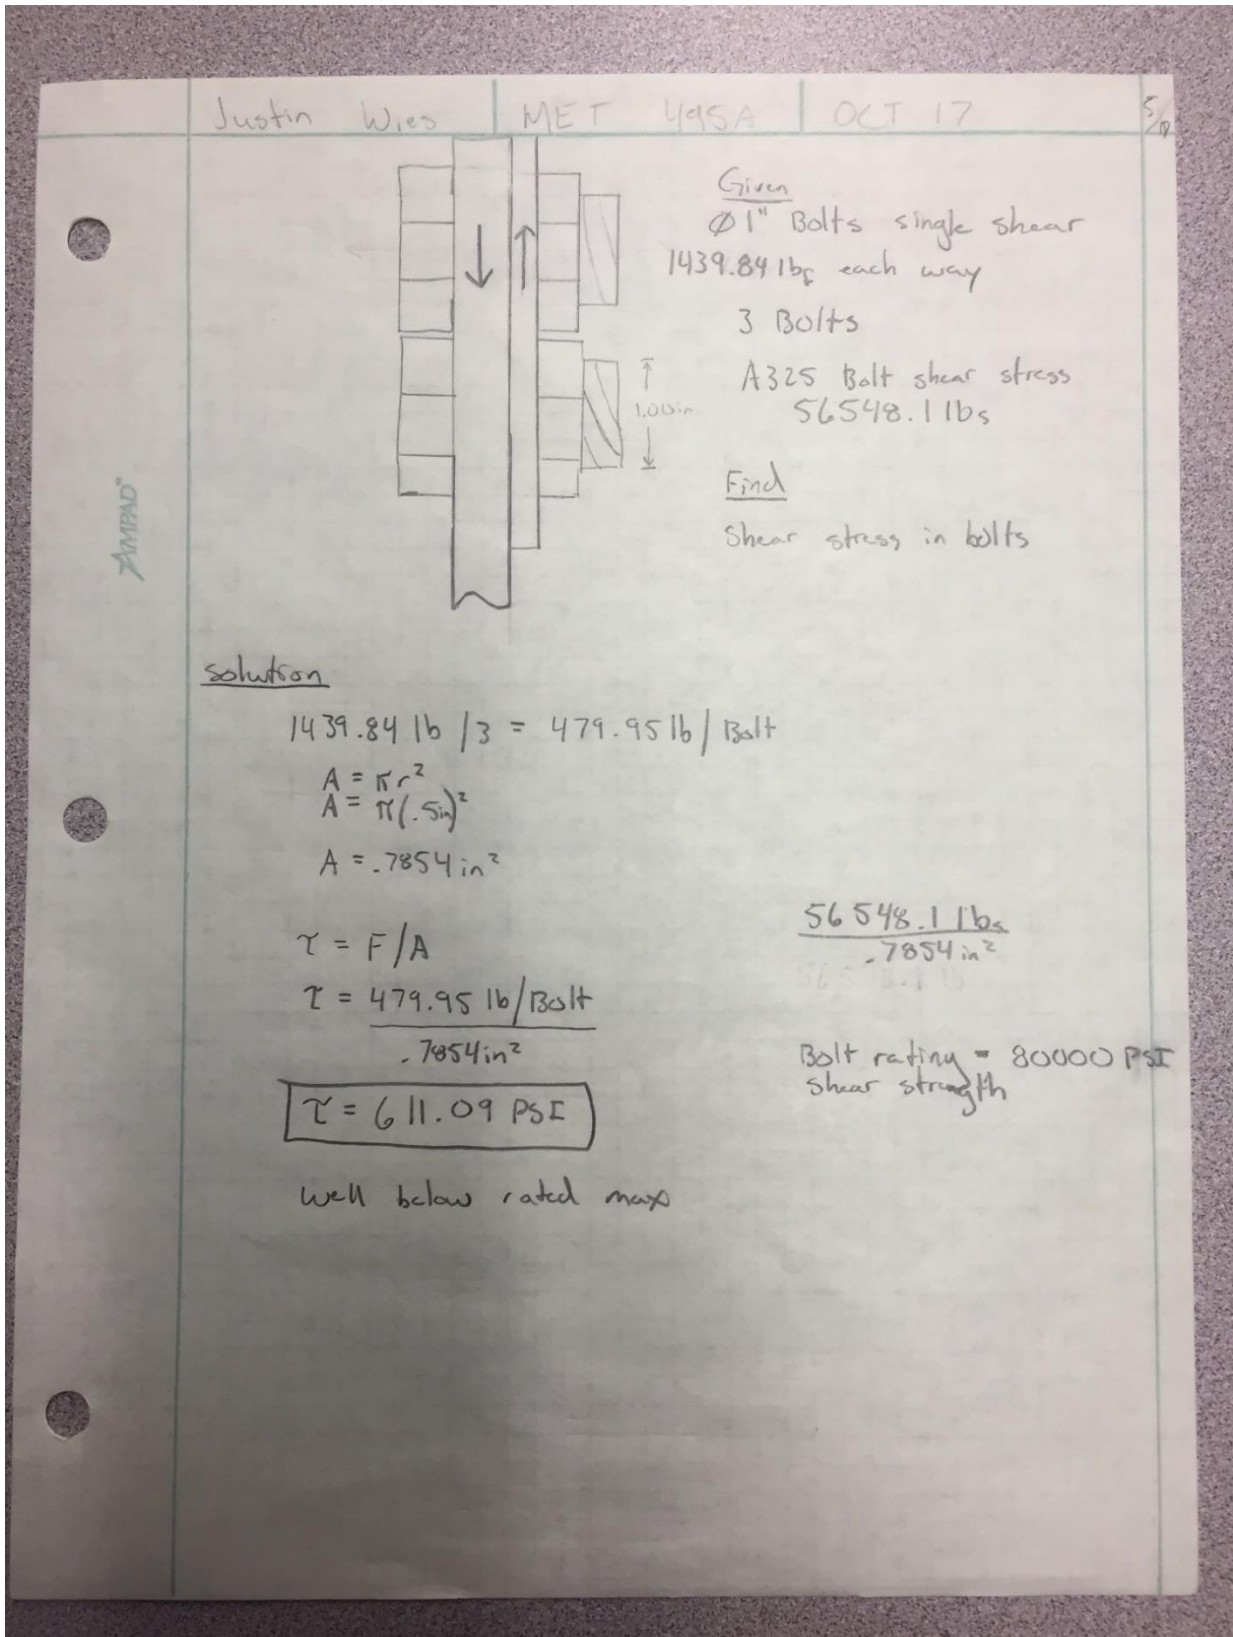 Justin Wies MET 495A OCT 17
Given
Ø 1" Bolts single shear
1439.84 lbf each way
3 Bolts
A325 Bolt shear stress
56548.1 lbs
1.00in
Find
Shear stress in bolts
AMPAD™
solution
1439.84 lb /3 = 479.95 lb / Bolt
A = πr²
A = π(.5in)²
A = .7854 in²
τ = F/A
τ = 479.95 lb/Bolt
.7854in²
τ = 611.09 PSI
Well below rated max
56548.1 lbs
.7854in²
Bolt rating = 80000 PSI
Shear strength